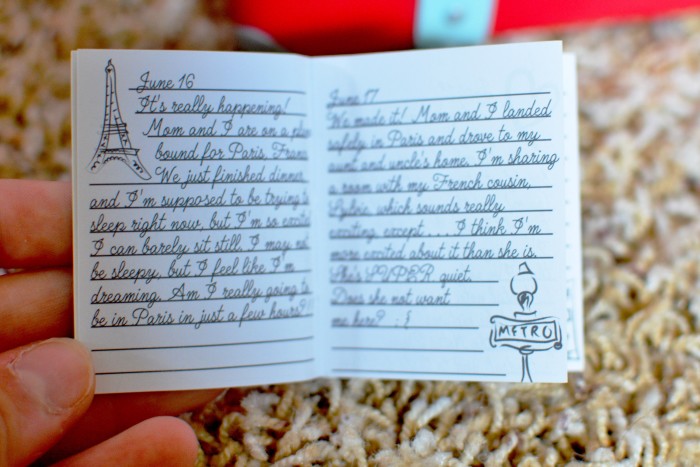 June 16
It's really happening!
Mom and I are on a
bound for Paris,
We just finished dinner
and I'm supposed to be trying
sleep right now, but I'm so
I can barely sit still. I may
be sleepy, but I feel like I'm
dreaming. Am I really going to
be in Paris in just a few hours?
June 17
We made it! Mom and I landed
safely in Paris and drove to my
aunt and uncle's home. I'm sharing
a room with my French cousin,
Sylvie, which sounds really
exciting except. . . . I think I'm
more excited about it than she is.
She's SUPER quiet.
Does she not want
me here? :{
METRO